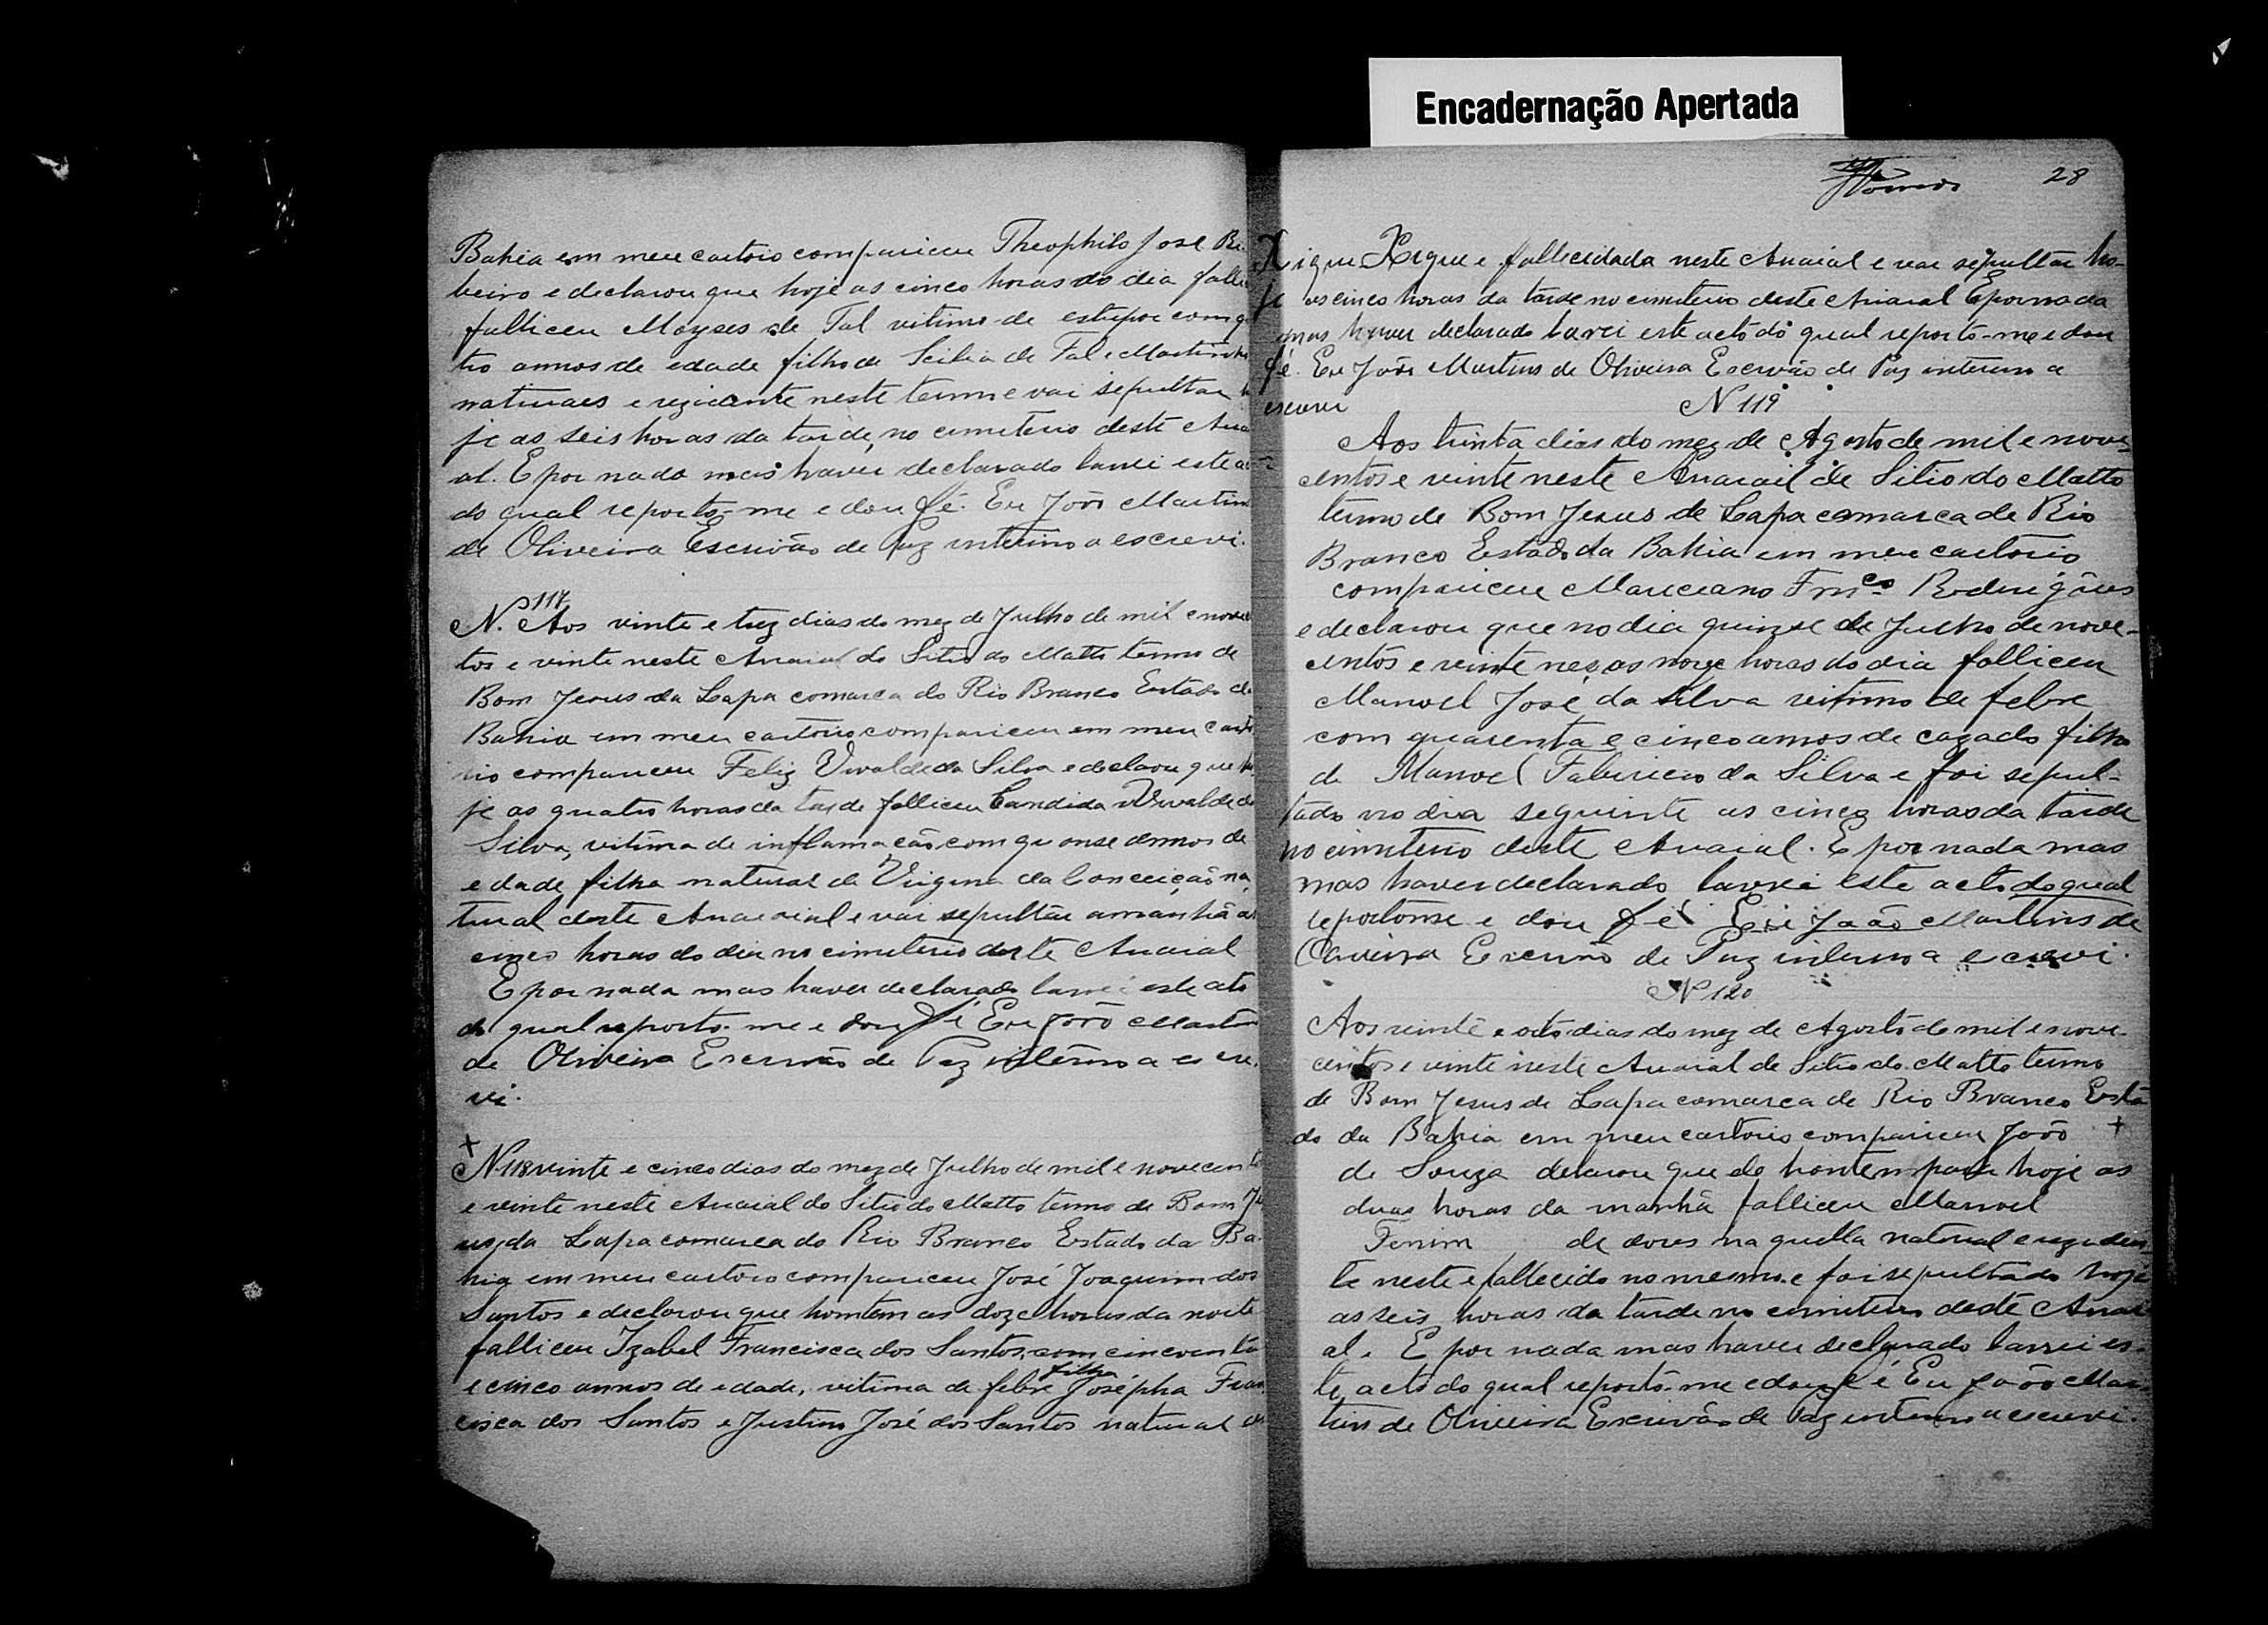 Encadernação Apertada
Bahia em meu cartorio compariceu Theophilo José Ri-
beiro e declarou que hoje as cinco horas do dia falli
falliceu Moyses de Tal vitima de estupor com q
tro annos de edade filho de Scilia de Tal e Martinho
naturaes e rezidente neste termo e vai sepultar h
je as seis horas da tarde, no cimiterio deste Arra
al. E por nada mais haver declarado lavrei este ac
do qual reporto-me e dou fé. Eu João Martins
de Oliveira Escrivão de Paz interino a escrevi.
N. 117 Aos vinte e trez dias do mez de Julho de mil e nove
tos e vinte neste Arraial do Sitio do Matto termo de
Bom Jesus da Lapa comarca do Rio Branco Estado da
Bahia em meu cartorio compariceu em meu carto
rio compareceu Feliz Uvalde da Silva e declarou que ho
je as quatro horas da tarde falliceu Candida Uvalde da
Silva, vitima de inflamacão com quonse annos de
edade filha natural de Virgina da Conceição na
tural deste Arraial e vai sepultar amanhã as
cinco horas do dia no cimiterio deste Arraial
E por nada mas haver declarado lavrei este ato
do qual reporto-me e dou fé Eu João Martin
de Oliveira Escrivão de Paz interino a escre.
vi.
+
N. 118 vinte e cinco dias do mez de Julho de mil e novecento
e vinte neste Arraial do Sitio do Matto termo de Bom Je
us da Lapa comarca do Rio Branco Estado da Ba-
hia em meu cartorio compariceu José Joaquim dos
Santos e declarou que hontem as doze horas da noite
falliceu Izabel Francisca dos Santos, com cincoenta
e cinco annos de edade, vitima de febre filha Josépha Fran
cisca dos Santos e Justino José dos Santos natural de
28
Xique Xique e fallecidada neste Arraial e vai sepultar ho-
je as cinco horas da tarde no cimiterio deste Arraial E por nada
mas haver declarado lavrei este acto do qual reporto-me e dou
fé. Eu João Martins de Oliveira Escrivão de Paz interino a
escrevi
N 119
Aos trinta dias do mez de Agosto de mil e nove-
centos e vinte neste Arraial de Sitio do Matto
termo de Bom Jesus de Lapa comarca de Rio
Branco Estado da Bahia em meu cartorio
compariceu Marceano Frnco Rodrigões
e declarou que no dia quinze de Julho de nove-
centos e vinte as nove horas do dia falliceu
Manoel José da Silva vitimo de febre
com quarenta e cinco annos de cazado filho
de Manoel Fabiricio da Silva e foi sepul-
tado no dia seguinte as cinco horas da tarde
no cimiterio deste Arraial. E por nada mas
mas haver declarado lavrei este acto do qual
reportome e dou fé Eu João Martins de
Oliveira Escrivão de Paz interino a escrevi.
N 120
Aos vinte e oito dias do mez de Agosto de mil e nove-
centos e vinte neste Arraial de Sitio do Matto termo
de Bom Jesus de Lapa comarca de Rio Branco Esta
do da Bahia em meu cartorio compariceu João +
de Souza delarou que de hontem para hoje as
duas horas da manhã falliceu Manoel
Fermim de dores naquella natural e rezeden-
te neste e fallecido no mesmo e foi sepultado hoje
as seis horas da tarde no cimiterio deste Arrai
al. E por nada mas haver declarado lavrei es-
te acto do qual reporto-me e dou fé Eu João Mar-
tins de Oliveira Escrivão de Paz interino a escrevi.